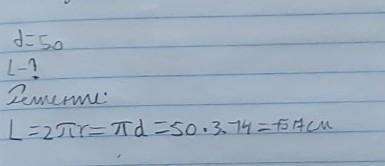 d=50
L-?
Решение:
L=2πr=πd=50·3.14=157см